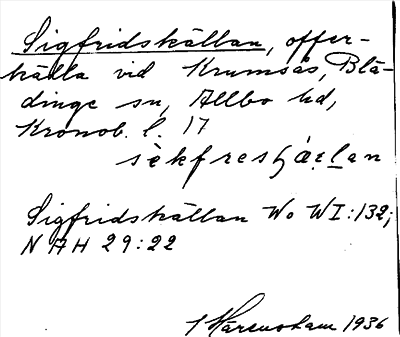 Sigfridskällan, offer-
källa vid Krumsås, Blä-
dinge sn, Allbo hd,
Kronob. l. 17
Sigfridskällan Wo WI:132;
NAH 29:22
1936